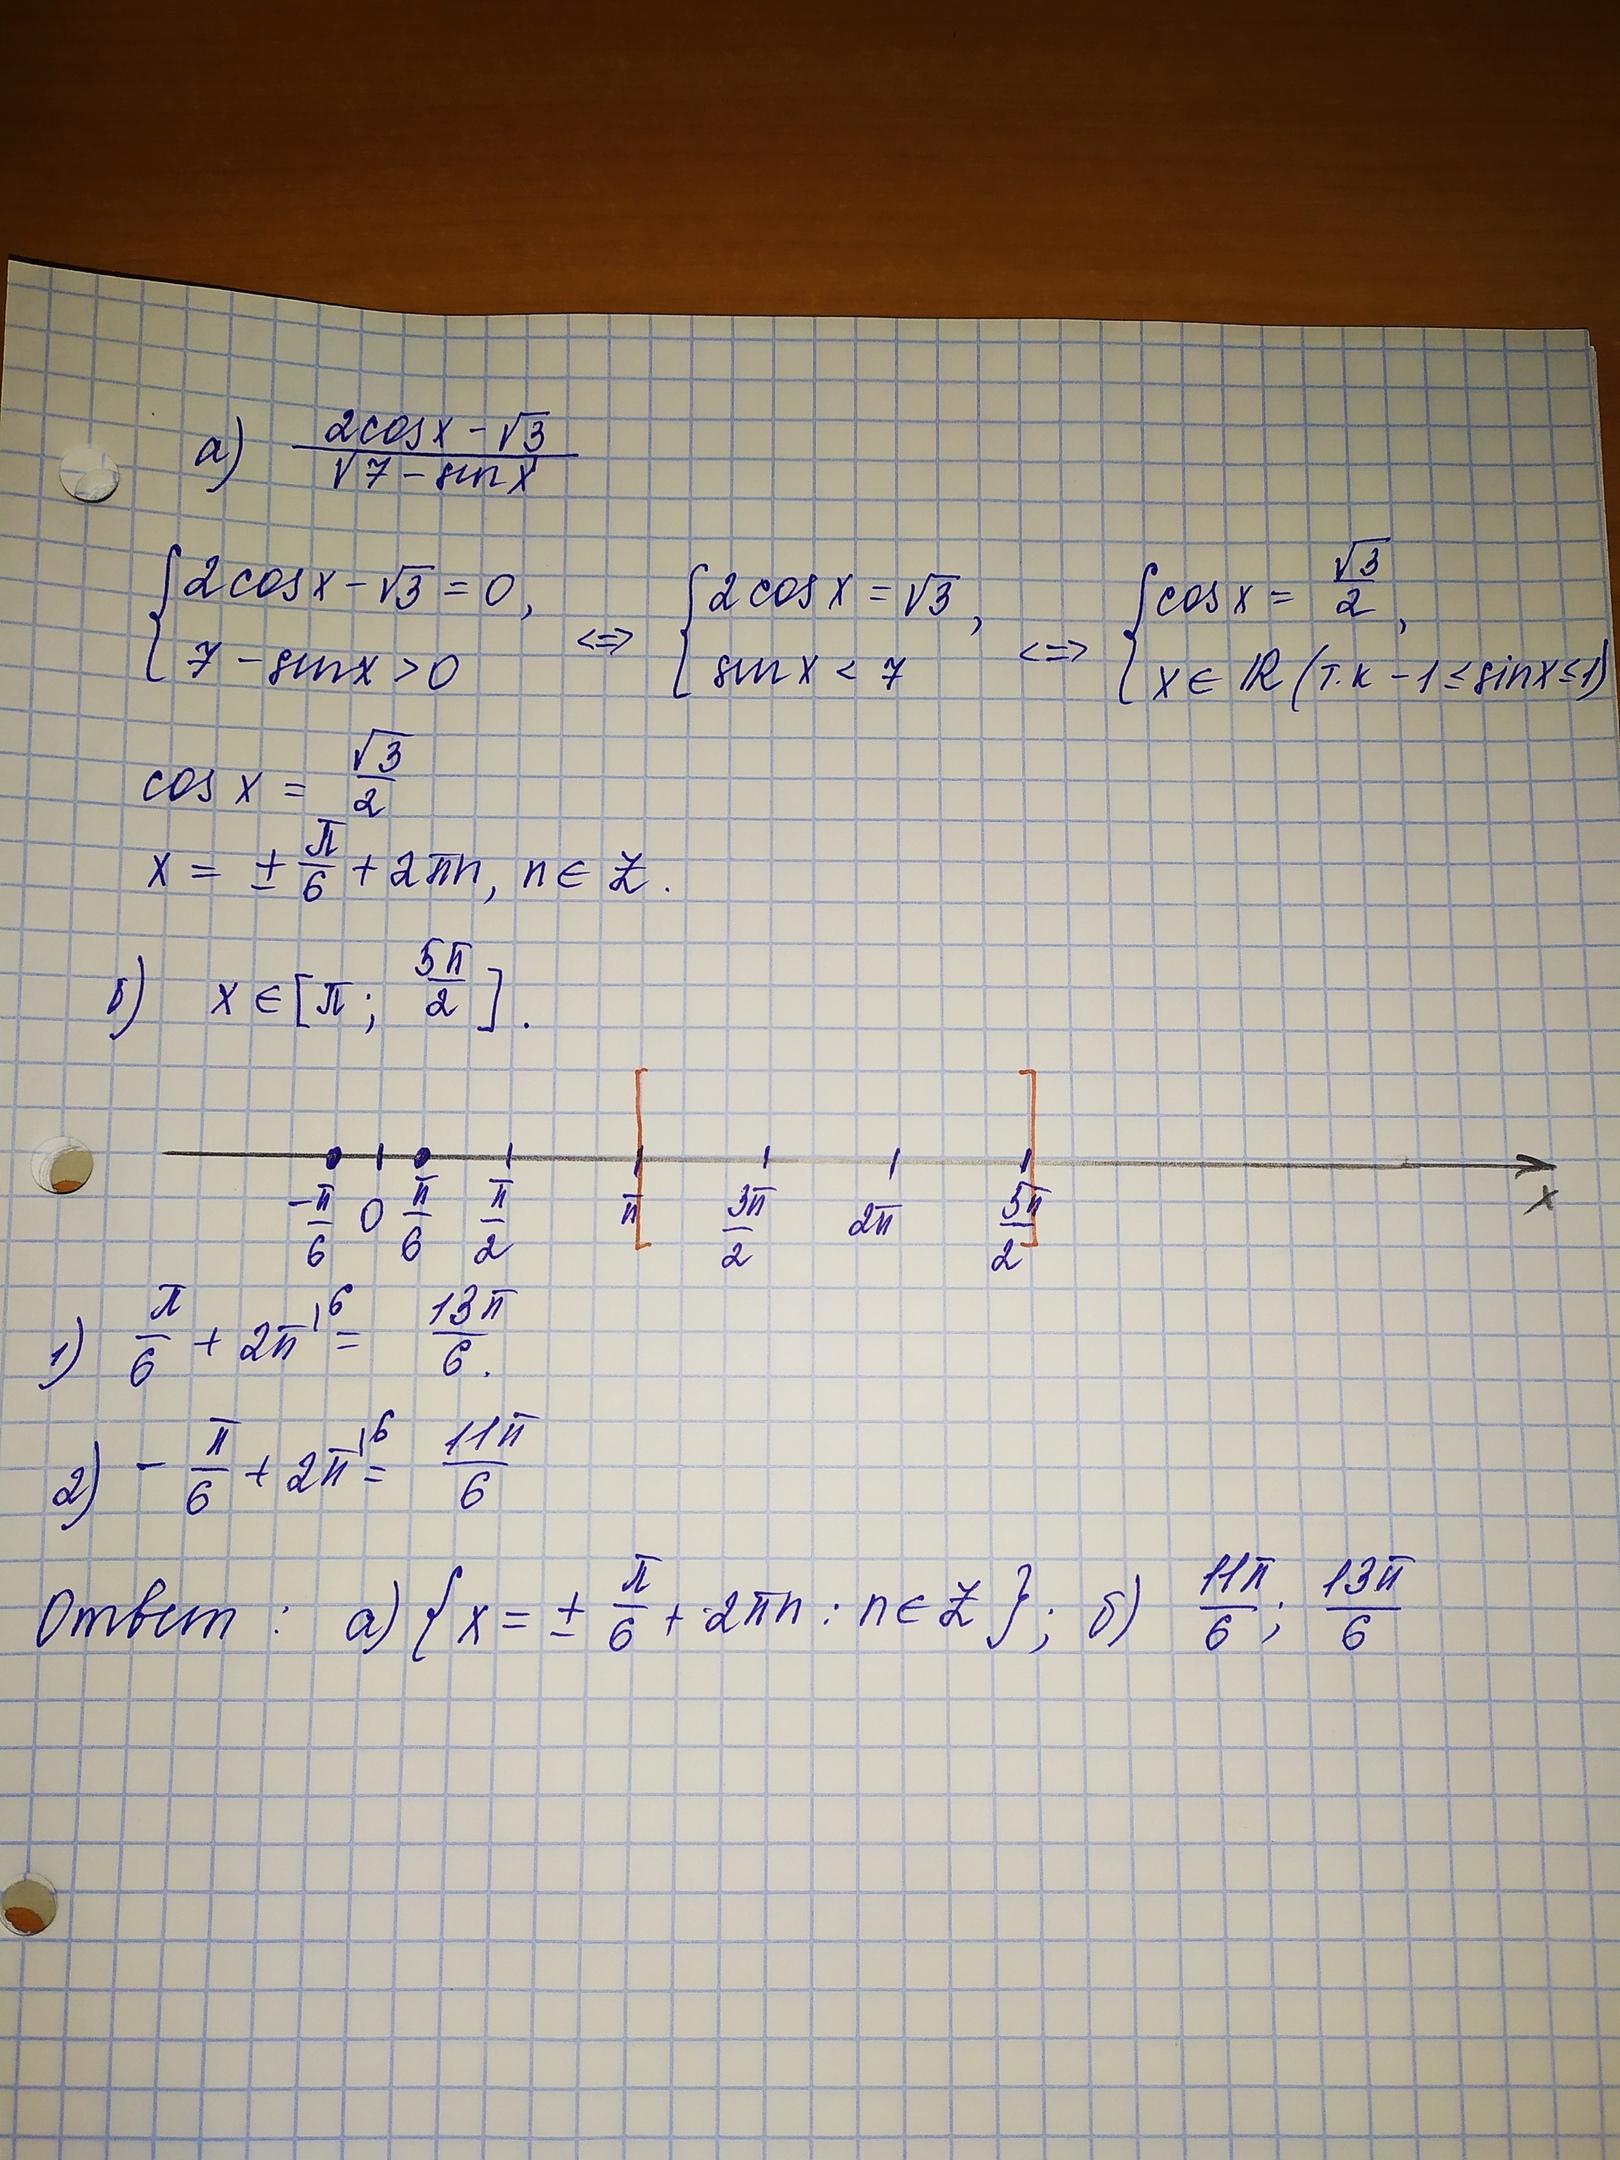 а) (2cosx - √3)/(√7 - sinx)
{2cosx - √3 = 0, <=> {2cosx = √3, <=> {cosx = √3/2,
7 - sinx > 0 sinx < 7 x ∈ ℝ (т.к -1 ≤ sinx ≤ 1)
cosx = √3/2
x = ± π/6 + 2πn, n ∈ ℤ.
б) x ∈ [π; 5π/2].
-π/6 0 π/6 π/2 π 3π/2 2π 5π/2 x
1) π/6 + 2π^\6 = 13π/6.
2) - π/6 + 2π^\6 = 11π/6
Ответ: а) {x = ± π/6 + 2πn : n ∈ ℤ}; б) 11π/6; 13π/6